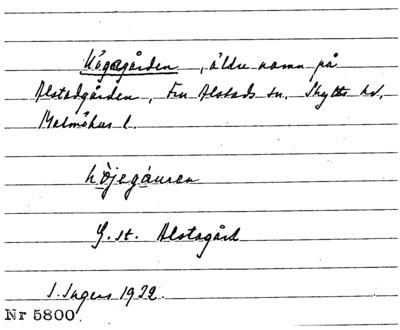 Högagården, äldre namn på
Alstadgården, Fru Alstads sn. Skytts hd,
Malmöhus l.
höjegáuren
G. st. Alstagård
I. Ingers 1932.
Nr 5800